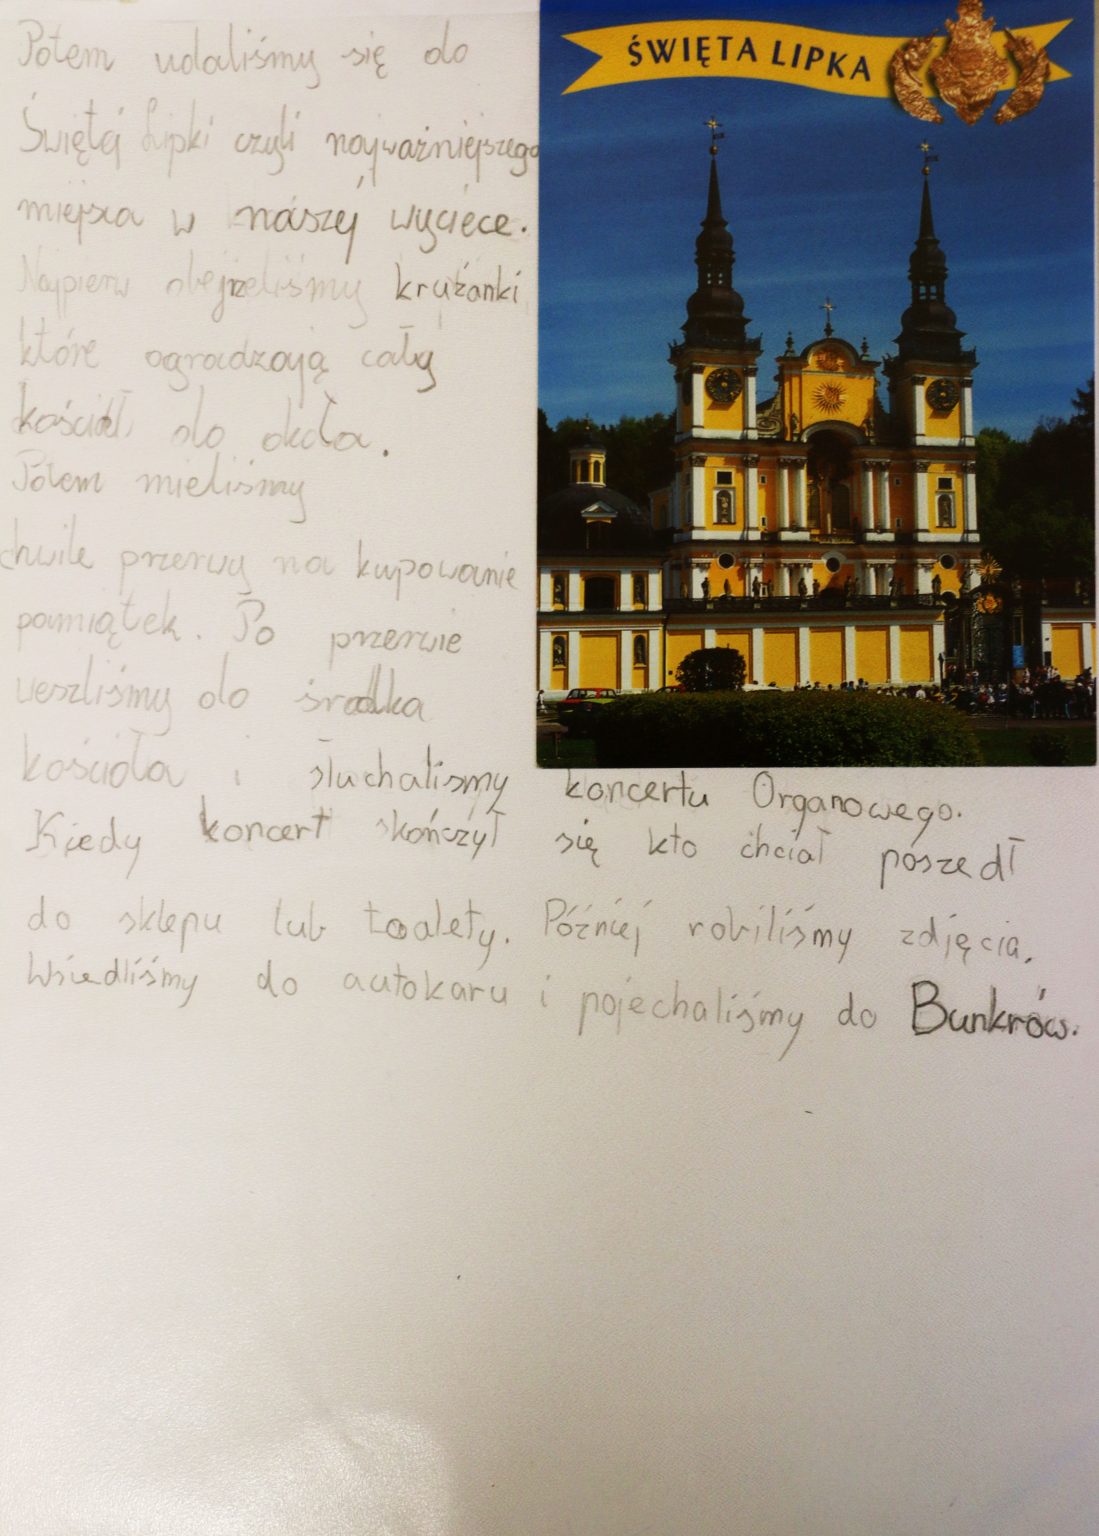 ŚWIĘTA LIPKA
Potem udaliśmy się do
Świętej Lipki czyli najważniejszego
miejsca w naszej wyciece.
Najpierw obejrzeliśmy krużanki
które ogradzają cały
kościół do okoła.
Potem mieliśmy
chwile przerwy na kupowanie
pamiątek. Po przerwie
weszliśmy do środka
kościoła i słuchalismy koncertu Organowego.
Kiedy koncert skończył się kto chciał poszedł
do sklepu lub toalety. Później robiliśmy zdjęcia.
Wsiedliśmy do autokaru i pojechaliśmy do Bunkrów.